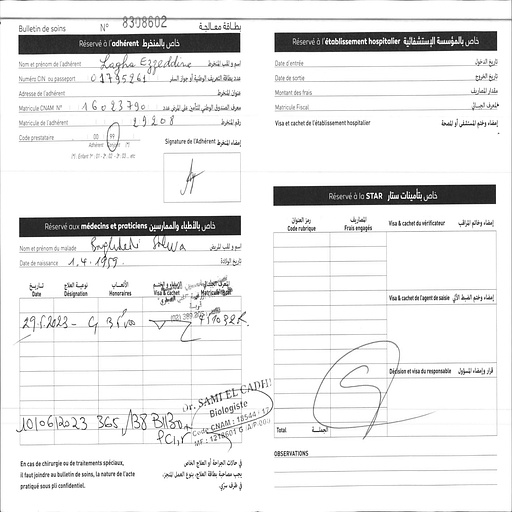 Bulletin de soins N° 8308602 بطاقة معالجة
Réservé à l'adhérent خاص بالمنخرط
Nom et prénom de l'adhérent Lagha Ezzeddine إسم و لقب المنخرط
Numéro CIN ou passeport 01795261 عدد بطاقة التعريف الوطنية أو جواز السفر
Adresse de l'adhérent عنوان المنخرط
Matricule CNAM N° 16023790
Matricule de l'adhérent 29208 رقم المنخرط
Code prestataire 00 99
Signature de l'Adhérent إمضاء المنخرط
Adhérent Conjoint (*)
Réservé aux médecins et praticiens خاص بالأطباء والممارسين
Nom et prénom du malade Salwa إسم و لقب المريض
Date de naissance 1.4.1959 تاريخ الولادة
تاريخ نوعية العلاج الأتعاب
Date Désignation Honoraires Visa & cachet
29.5.2023
Dr. SAMI EL CADHI
Biologiste
Code CNAM : 18544 / 17
10/06/2023 365,138 B1130
En cas de chirurgie ou de traitements spéciaux,
il faut joindre au bulletin de soins, la nature de l'acte
pratiqué sous pli confidentiel.
في حالات الجراحة أو العلاج الخاص
يجب مصاحبة بطاقة العلاج، بنوع العمل المنجز،
في ظرف سري.
Réservé à l'établissement hospitalier خاص بالمؤسسة الإستشفائية
Date d'entrée تاريخ الدخول
Date de sortie تاريخ الخروج
Montant des frais مقدار المصاريف
Matricule Fiscal المعرف الجبائي
Visa et cachet de l'établissement hospitalier إمضاء وختم المستشفى أو المصحة
Réservé à la STAR خاص بتأمينات ستار
رمز العنوان المصاريف
Code rubrique Frais engagés
Visa & cachet du vérificateur إمضاء وختم المراقب
Visa & cachet de l'agent de saisie
Décision et visa du responsable قرار وإمضاء المسؤول
Total الجملة
OBSERVATIONS